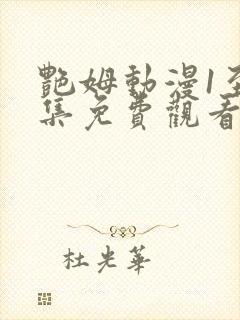 艷姆動漫1至
集免費觀看
杜光華